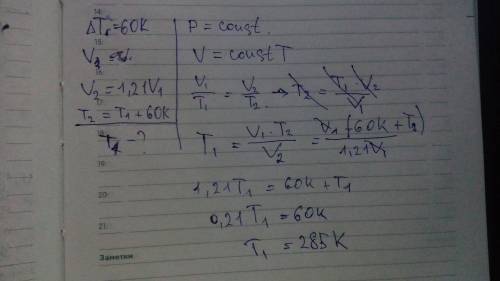 ΔT₁=60K
V₂ = V₁
V₂ = 1,21V₁
T₂ = T₁ + 60K
T₁ - ?
P = const.
V = const T
V₁/T₁ = V₂/T₂ → T₂ = T₁ V₂/V₁
T₁ = V₁ · T₂/V₂ = V₁ (60K + T₂)/1,21V₁
1,21T₁ = 60K + T₁
0,21T₁ = 60K
T₁ = 285K
14
15
16
17
18
19
20.
21.
Заметки